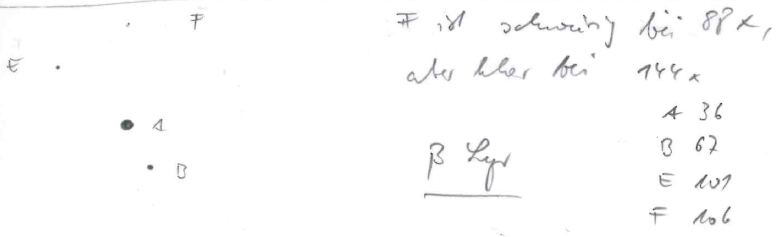 F
E
A
B
F ist schwierig bei 88x,
aber klar bei 144x
β Lyr
A 36
B 67
E 101
F 106